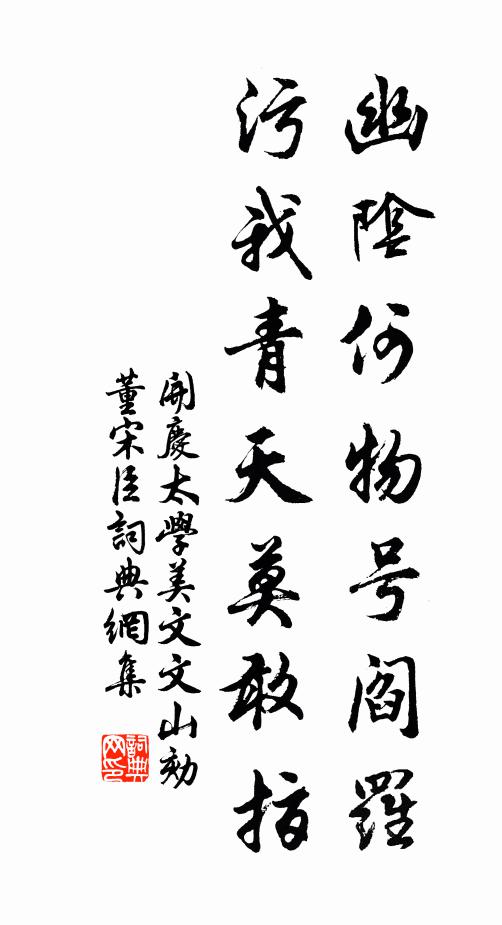 幽陰何物号閻羅
污我青天莫敢指
開慶太學美文文山劾
董宋臣詞典網集
詞典
网印